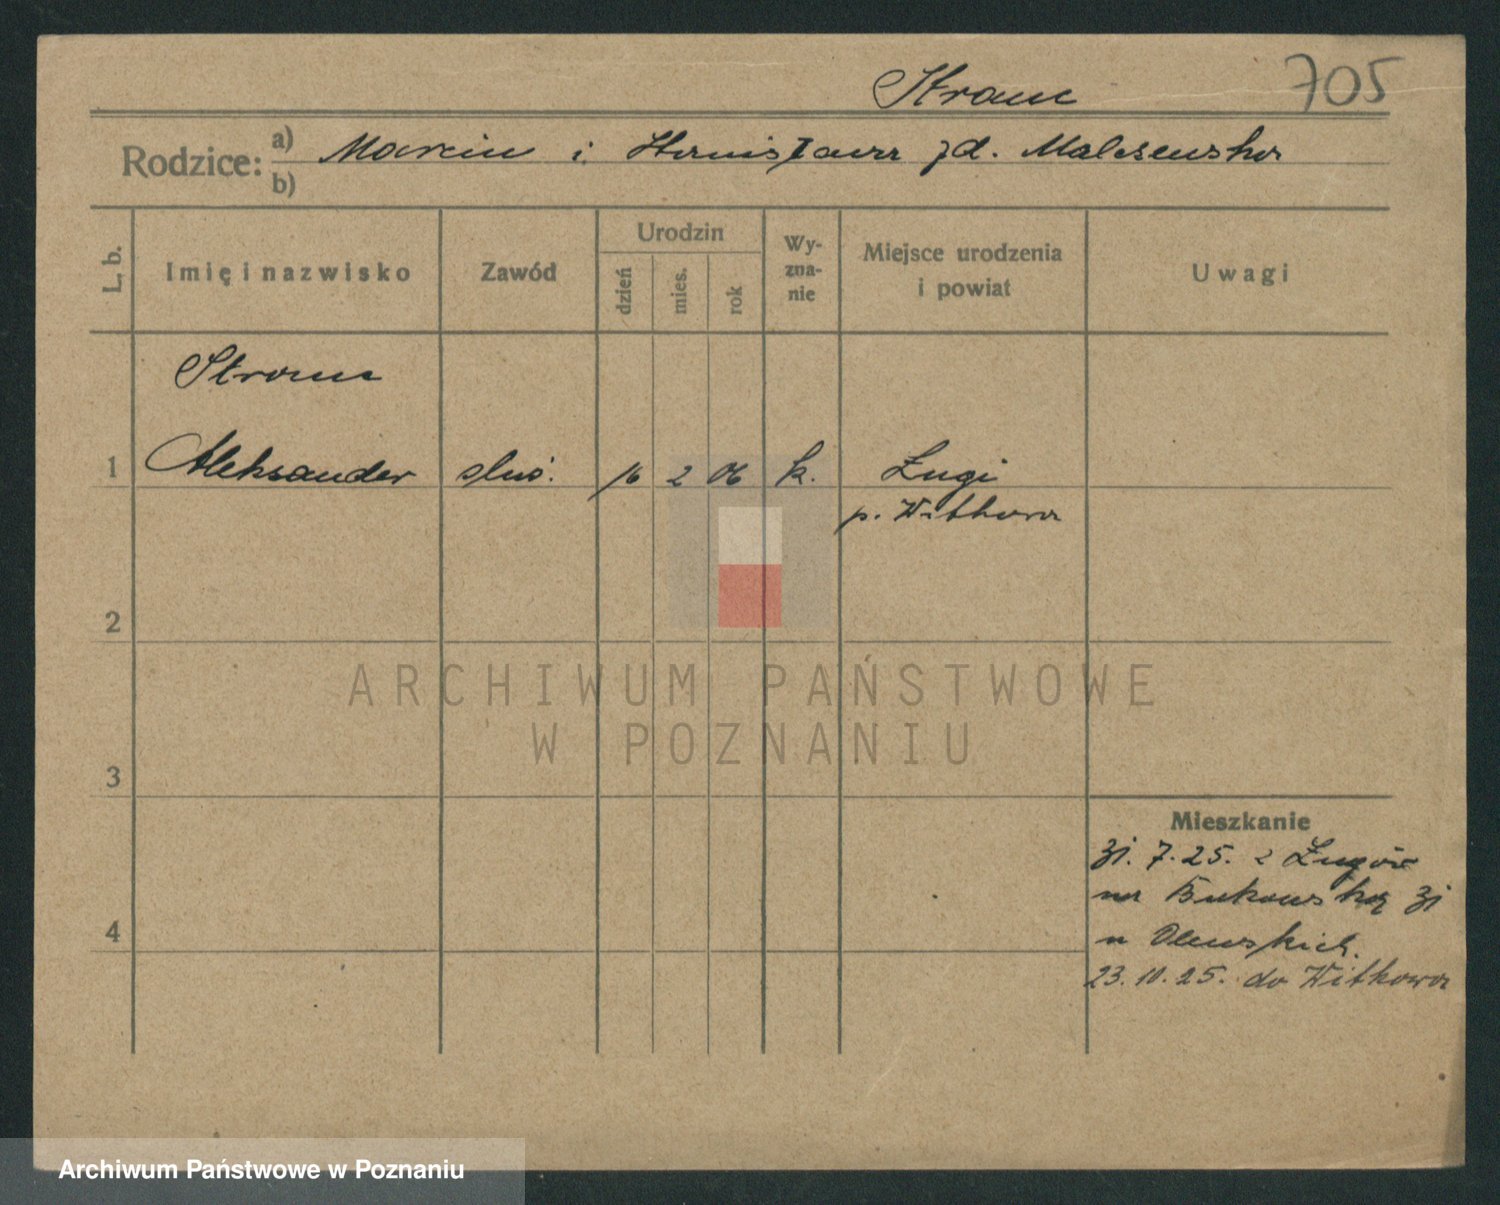 Stranc
705
Rodzice: a) Marcin i Stanisława zd. Malesewska
b)
L. b. Imię i nazwisko Zawód Urodzin dzień mies. rok Wy-zna-nie Miejsce urodzenia i powiat Uwagi
Stranc
1 Aleksander służ. 16 2 06 k. Żugi
p. Witkowo
2
3
4
Mieszkanie
31. 7. 25. z
na Bukowską 31
u
23. 10. 25. do Witkowa
ARCHIWUM PAŃSTWOWE
W POZNANIU
Archiwum Państwowe w Poznaniu